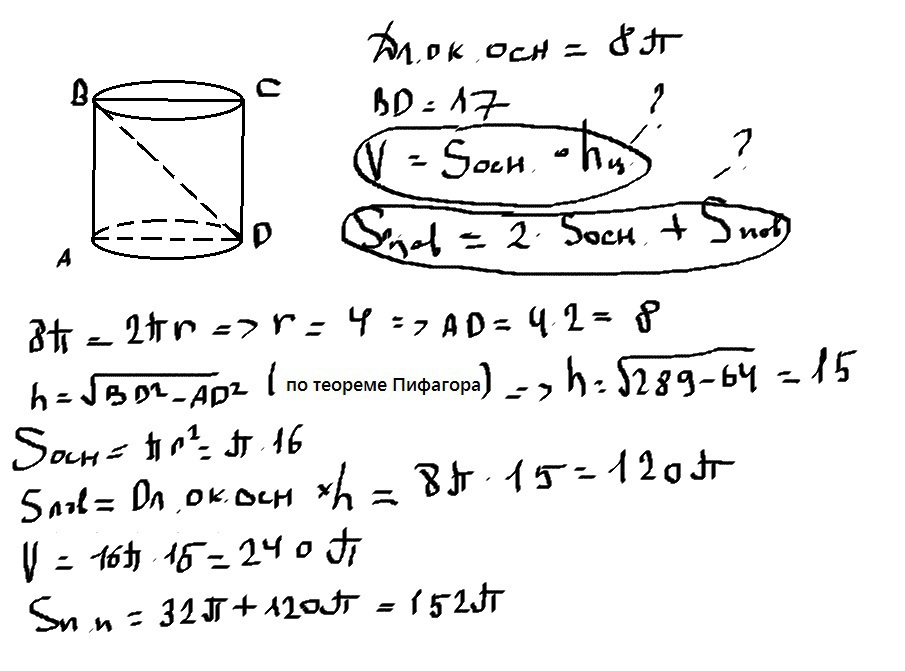 Дл.ок.осн = 8π
BD = 17
V = Sосн. · hц ?
Sпов = 2 · Sосн. + Sпов ?
B C
A D
8π = 2πr => r = 4 => AD = 4·2 = 8
h = √BD² - AD² ( по теореме Пифагора) => h = √289-64 = 15
Sосн = πr² = π·16
Sпов = Дл.ок.осн × h = 8π · 15 = 120π
V = 16π · 15 = 240π
Sп.п = 32π + 120π = 152π